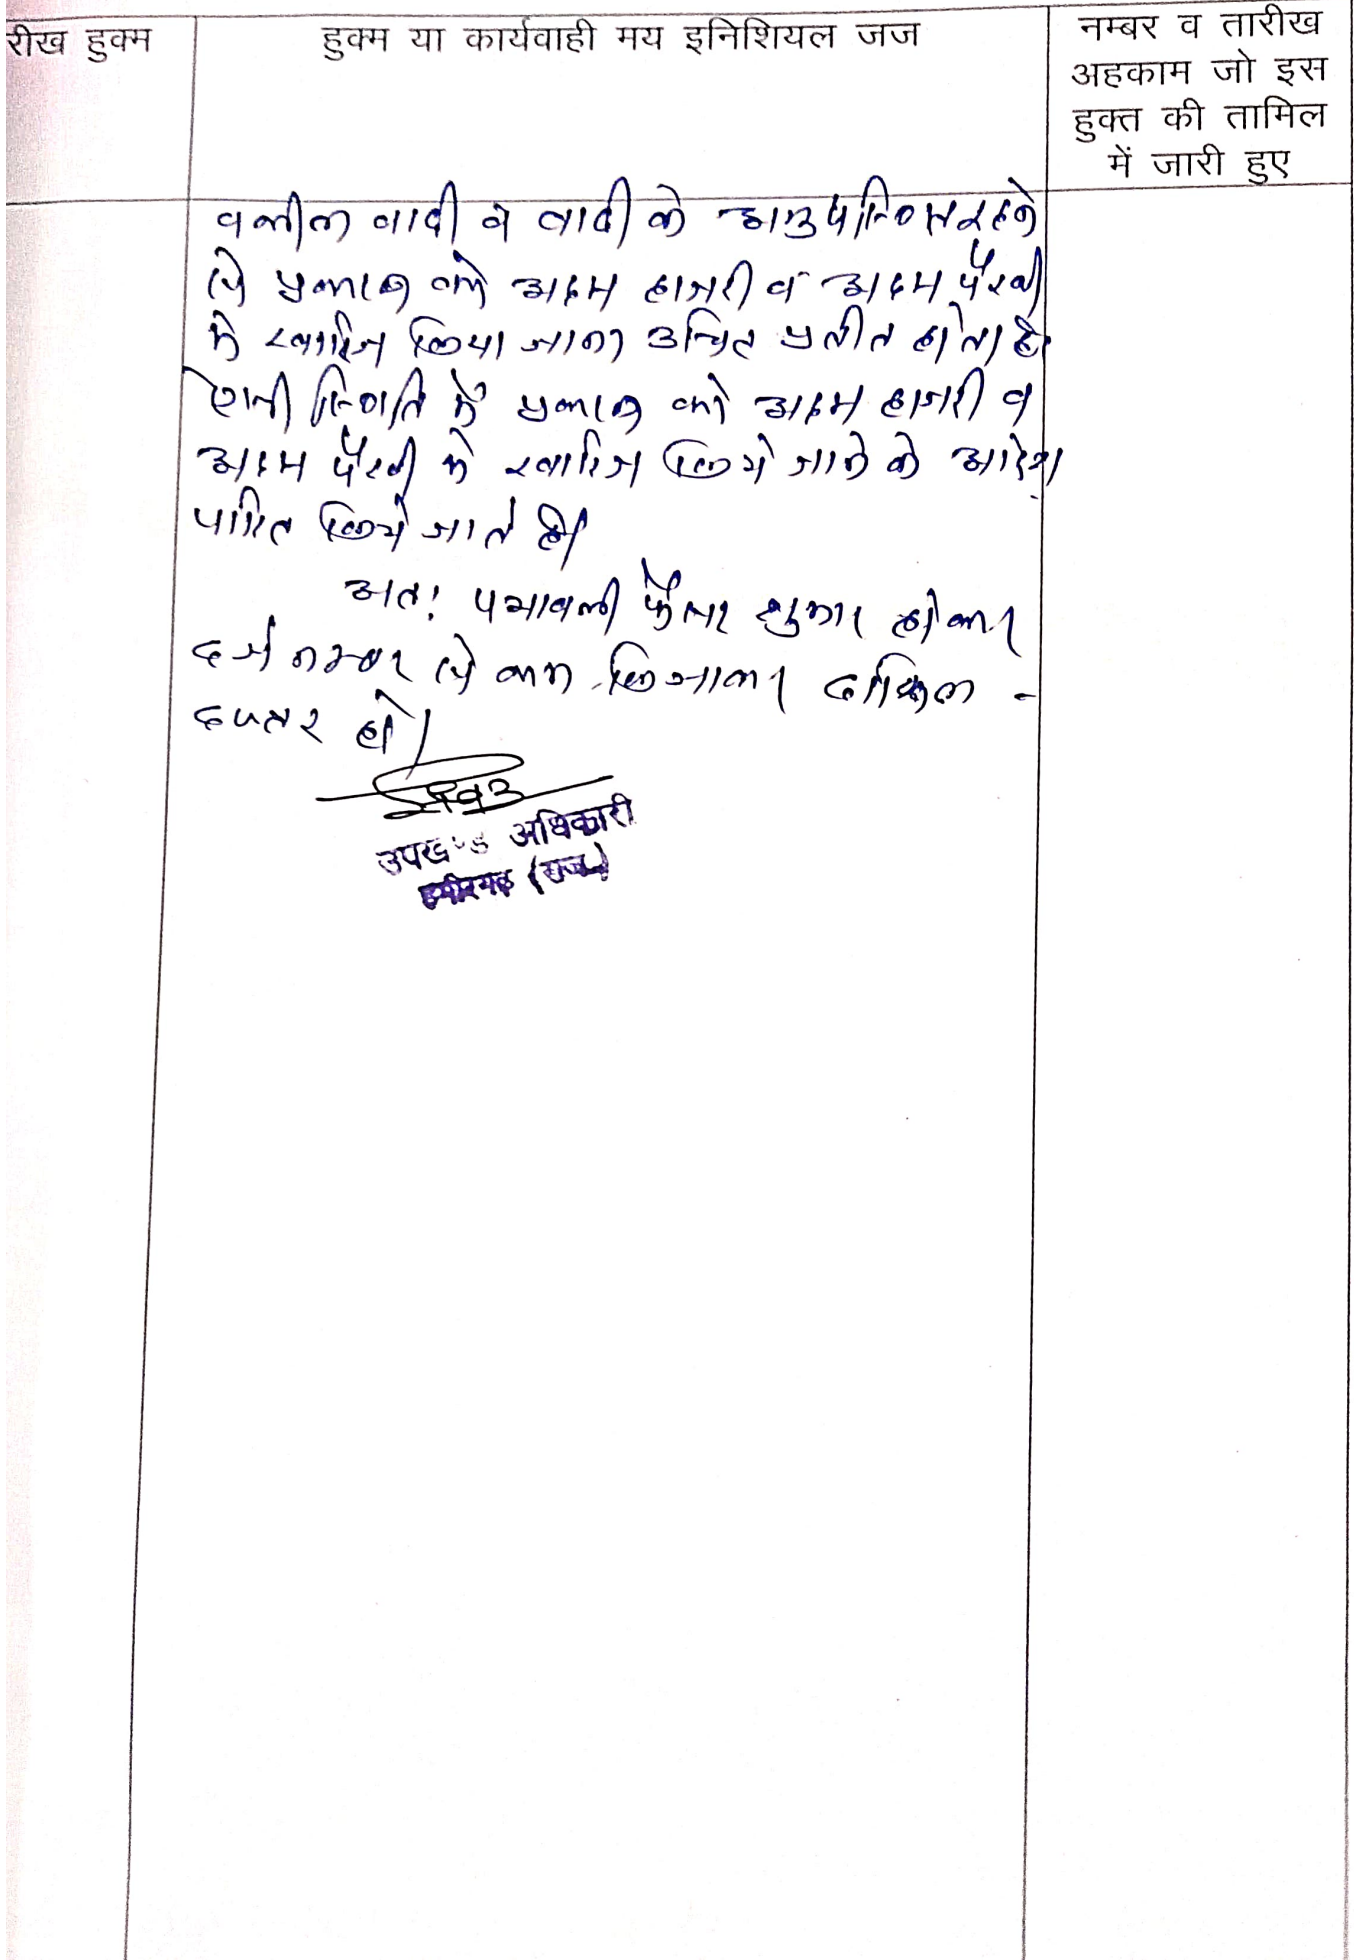 रीख हुक्म
हुक्म या कार्यवाही मय इनिशियल जज
नम्बर व तारीख
अहकाम जो इस
हुक्त की तामिल
में जारी हुए
वकील वादी व वादी के अनुपस्थित रहने
से प्रकरण को अदम हाजरी व अदम पैरवी
मे खारिज किया जाना उचित प्रतीत होता है।
ऐसी स्थिति में प्रकरण को अदम हाजरी व
अदम पैरवी मे खारिज किये जाने के आदेश
पारित किये जाते है।
अतः पत्रावली फैसल शुमार होकर
दर्ज नम्बर से कम किजाकर दाखिल -
दफ्तर हो।
उपखण्ड अधिकारी
हमीरगढ़ (राज.)